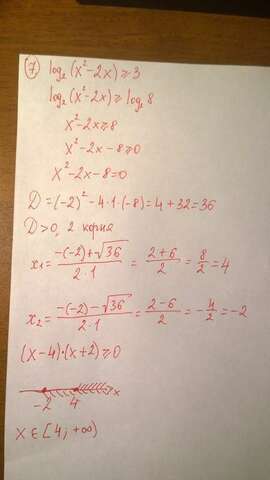 ⑦ log₂(x²-2x)≥3
log₂(x²-2x)≥log₂8
x²-2x≥8
x²-2x-8≥0
x²-2x-8=0
D=(-2)²-4·1·(-8)=4+32=36
D>0, 2 корня
x₁=(-(-2)+√36)/(2·1)=(2+6)/2=8/2=4
x₂=(-(-2)-√36)/(2·1)=(2-6)/2=-4/2=-2
(x-4)·(x+2)≥0
-2 4 x
x∈[4;+∞)